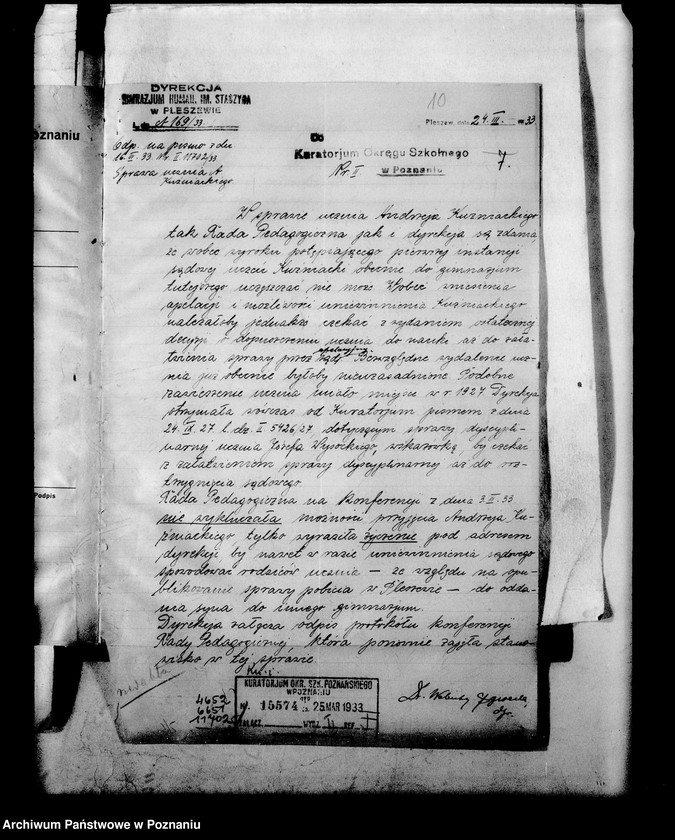 DYREKCJA
GIMNAZJUM HUMAN. IM. STASZYCA
W PLESZEWIE
L. dz. 169/33.
10
Pleszew, dnia 24. III. 1933
Odp. na pismo z dn
16. II. 33. Nr. I 11702/33
Sprawa ucznia A.
Kuźniackiego.
Do
Kuratorjum Okręgu Szkolnego
w Poznaniu
7.
W sprawie ucznia Andrzeja Kuźniackiego
tak Rada Pedagogiczna jak i dyrekcja są zdania,
że wobec wyroku potępiającego pierwszej instancji
sądowej uczeń Kuźniacki obecnie do gimnazjum
tutejszego uczęszczać nie może. Wobec zniesienia
apelacji i możliwości uniewinnienia Kuźniackiego
należałoby jednakże czekać z wydaniem ostatecznej
decyzji o dopuszczeniu ucznia do nauki aż do zała-
twienia sprawy przez sąd apelacyjny. Bezwzględne wydalenie ucz-
nia już obecnie byłoby nieuzasadnione. Podobne
zawieszenie ucznia miało miejsce w r. 1927. Dyrekcja
otrzymała wówczas od Kuratorjum pismem z dnia
24. IX. 27 l. dz. I. 5426/27 dotyczącym sprawy dyscypli-
narnej ucznia Józefa Wysockiego, wskazówkę, by czekać
z załatwieniem sprawy dyscyplinarnej aż do roz-
strzygnięcia sądowego.
Rada Pedagogiczna na Konferencji z dnia 3. II. 33
nie wykluczała możności przyjęcia Andrzeja Ku-
źniackiego tylko wyraziła życzenie pod adresem
dyrekcji by nawet w razie uniewinnienia sądowego
spowodować rodziców ucznia – ze względu na opu-
blikowanie sprawy pobicia w Pleszewie – do odda-
nia syna do innego gimnazjum.
Dyrekcja załącza odpis protokółu konferencji
Rady Pedagogicznej, która ponownie zajęła stano-
wisko w tej sprawie.
4652
6651
11702
KURATORJUM OKR. SZK. POZNAŃSKIEGO
W POZNANIU
N. 15574 25 MAR 1933
ZAŁĄCZ. WYDZ. II REF. I
Dr.
oznaniu
Podpis
Archiwum Państwowe w Poznaniu